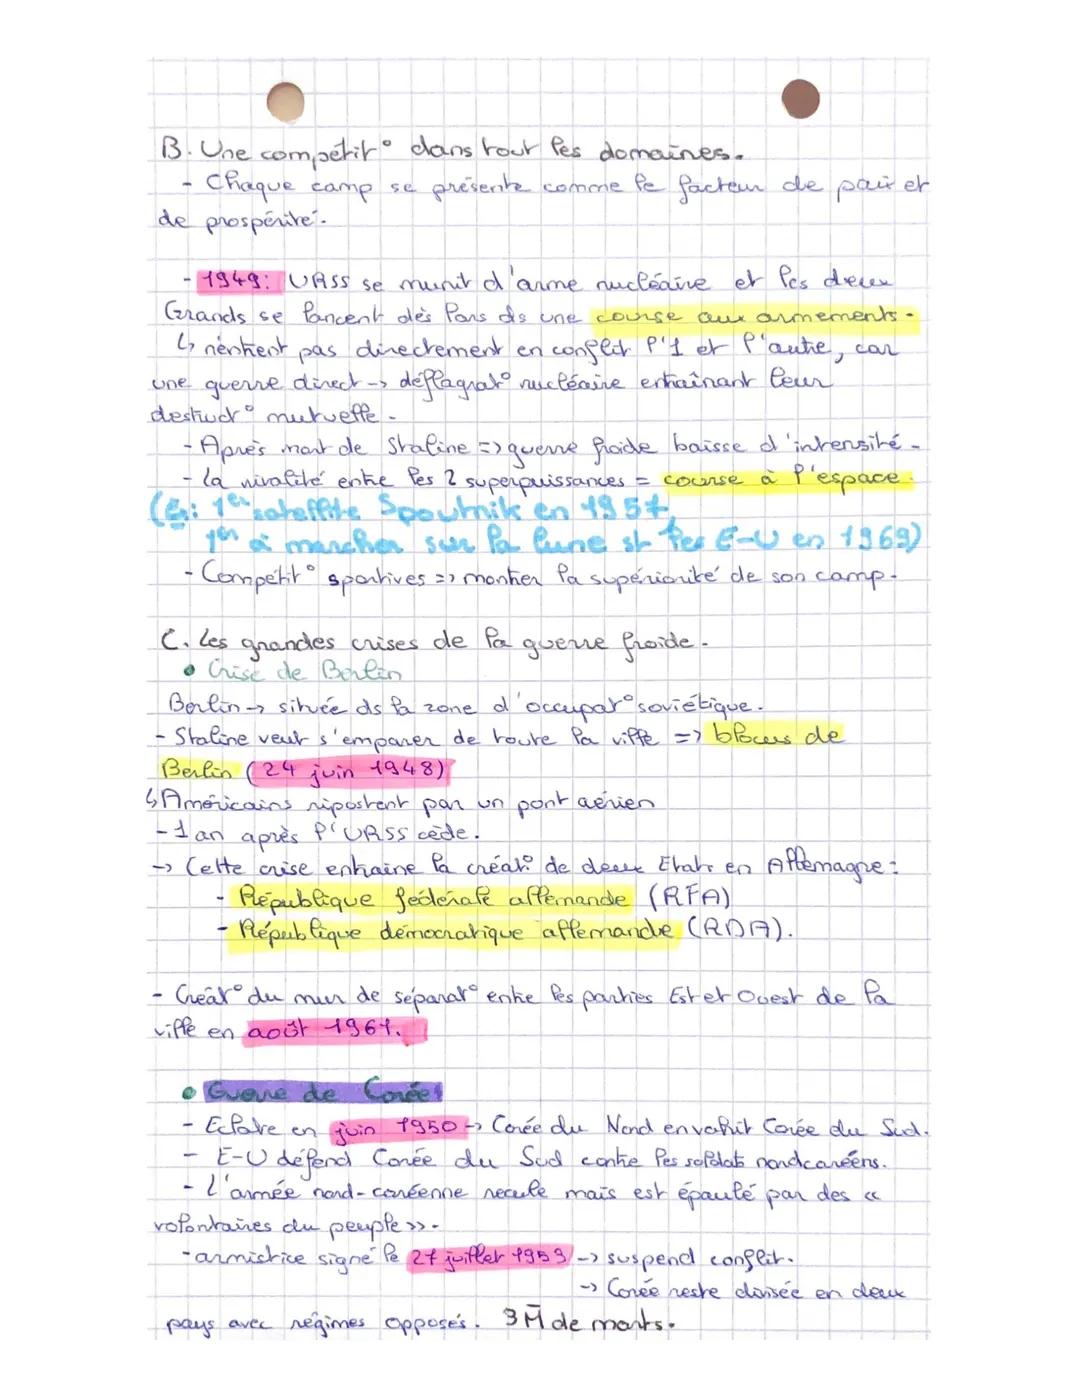 B. Une compétit° dans tout les domaines.
- Chaque camp se présente comme le facteur de paix et
de prospérité.
- 1949: URSS se munit d'arme nucléaire et les deux
Grands se lancent dès lors ds une course aux armements.
↳ n'entrent pas directement en conflit l'1 et l'autre, car
une guerre direct -> déflagrat° nucléaire entraînant leur
destruct° mutuelle.
- Après mort de Staline => guerre froide baisse d'intensité.
- La rivalité entre les 2 superpuissances = course à l'espace.
(Ex: 1er satellite Spoutnik en 1957,
1er à marcher sur la lune st les E-U en 1969)
- Compétit° sportives => montrer la supériorité de son camp.
C. Les grandes crises de la guerre froide.
• Crise de Berlin
Berlin -> située ds la zone d'occupat° soviétique.
- Staline veut s'emparer de toute la ville => blocus de
Berlin (24 juin 1948)
↳ Américains ripostent par un pont aérien
- 1 an après l'URSS cède.
-> Cette crise entraine la créat° de deux Etats en Allemagne:
- République fédérale allemande (RFA)
- République démocratique allemande (RDA).
- Créat° du mur de séparat° entre les parties Est et Ouest de la
ville en août 1961.
• Guerre de Corée:
- Eclate en juin 1950 -> Corée du Nord envahit Corée du Sud.
- E-U défend Corée du Sud contre les soldats nordcoréens.
- L'armée nord-coréenne recule mais est épaulé par des «
volontaires du peuple ».
- armistice signé le 27 juillet 1953 -> suspend conflit.
-> Corée reste divisée en deux
pays avec régimes opposés. 3 M de morts.